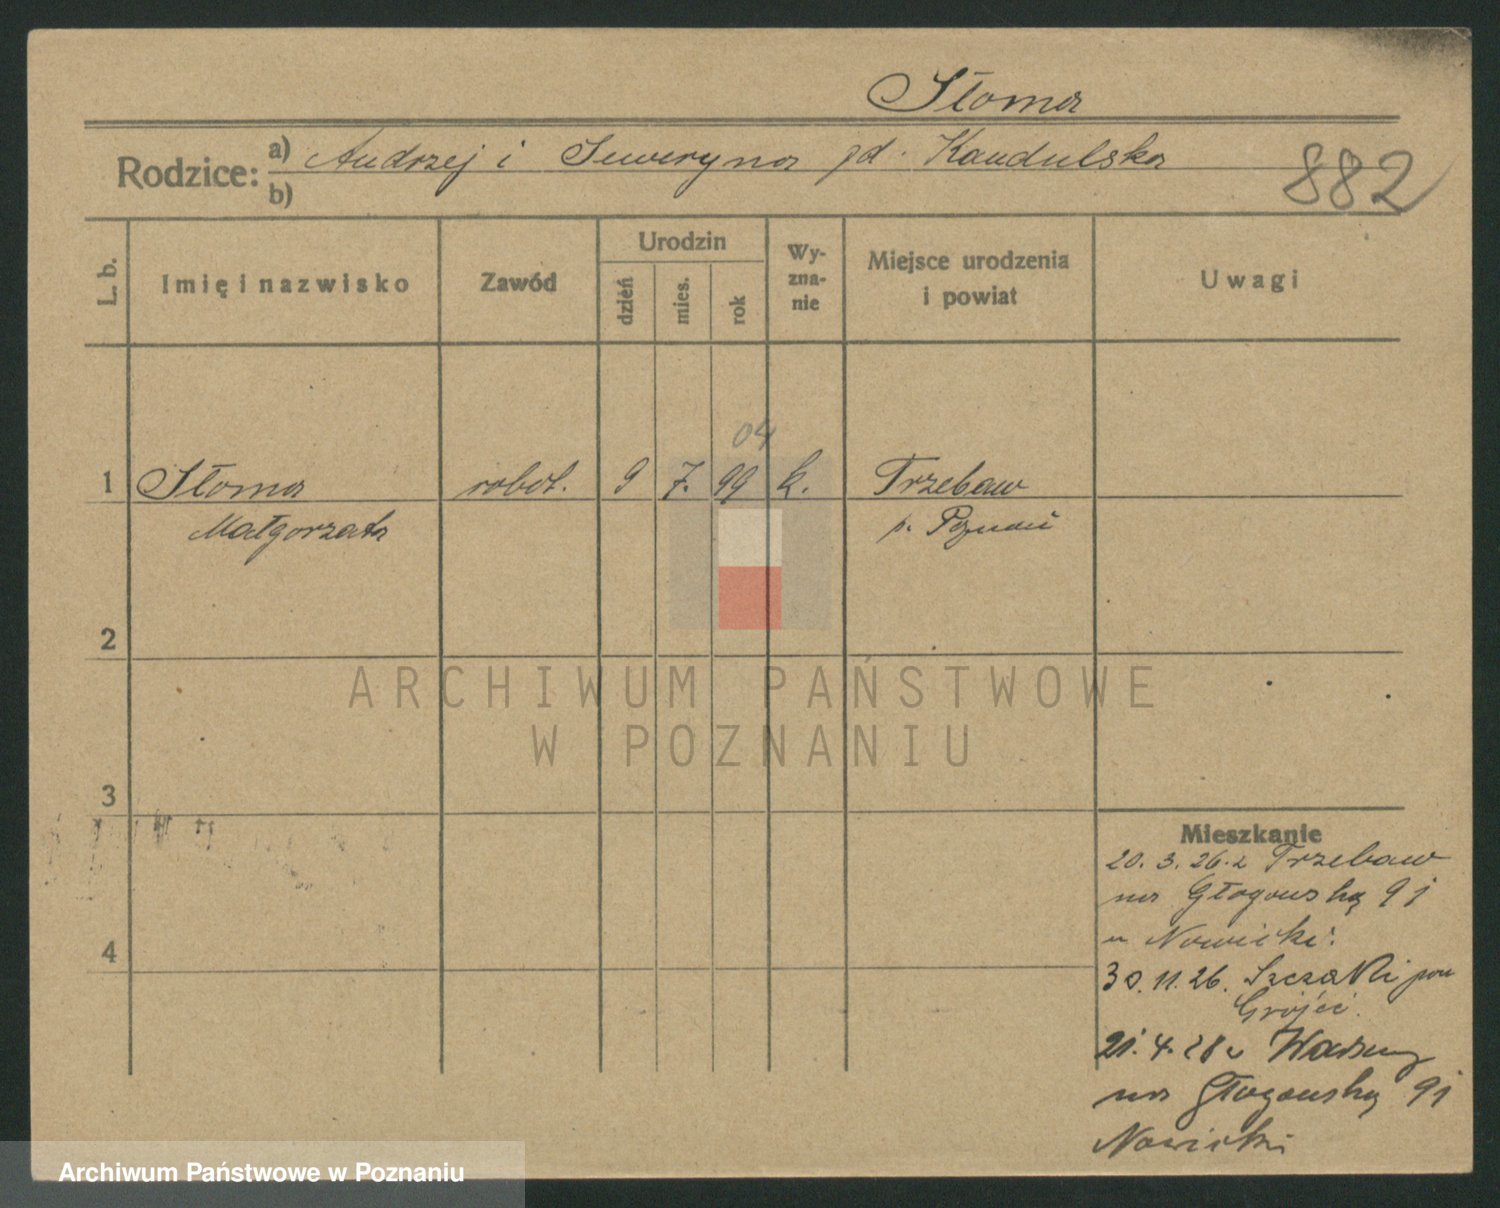 Słoma
Rodzice: a) Andrzej i Seweryna zd. Kandulska
b)
882
L. b.
Imię i nazwisko
Zawód
Urodzin
dzień
mies.
rok
Wy-
zna-
nie
Miejsce urodzenia
i powiat
Uwagi
04
1 Słoma robot. 9 7. 99 k. Trzebaw
Małgorzata p. Poznań
2
ARCHIWUM PAŃSTWOWE
W POZNANIU
3
Mieszkanie
20. 3. 26. z Trzebaw
na Głogowską 91
u Nowicki.
4
30. 11. 26. Szczaki pow
Grójec.
21. 4. 28 z
na Głogowską 91
Nowicki
Archiwum Państwowe w Poznaniu